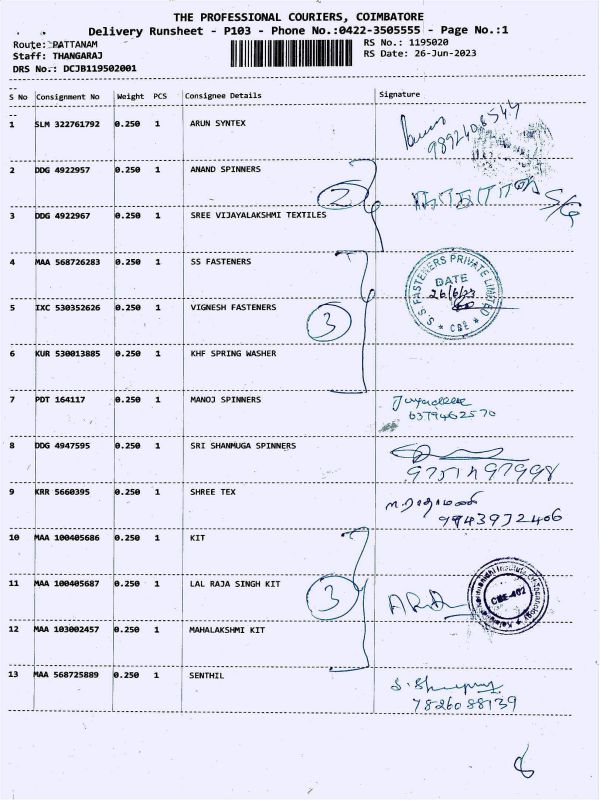 THE PROFESSIONAL COURIERS, COIMBATORE
Delivery Runsheet - P103 - Phone No.:0422-3505555 - Page No.:1
Route: PATTANAM
RS No.: 1195020
Staff: THANGARAJ
RS Date: 26-Jun-2023
DRS No.: DCJB119502001
S No Consignment No Weight PCS Consignee Details Signature
1 SLM 322761792 0.250 1 ARUN SYNTEX
2 DDG 4922957 0.250 1 ANAND SPINNERS
2
3 DDG 4922967 0.250 1 SREE VIJAYALAKSHMI TEXTILES
4 MAA 568726283 0.250 1 SS FASTENERS
S.S FASTENERS PRIVATE LIMITED
DATE
26/6/23
* CBE *
5 IXC 530352626 0.250 1 VIGNESH FASTENERS
3
6 KUR 530013885 0.250 1 KHF SPRING WASHER
7 PDT 164117 0.250 1 MANOJ SPINNERS
6379462570
8 DDG 4947595 0.250 1 SRI SHANMUGA SPINNERS
9 KRR 5660395 0.250 1 SHREE TEX
9943932406
10 MAA 100405686 0.250 1 KIT
11 MAA 100405687 0.250 1 LAL RAJA SINGH KIT
3
CBE-402
12 MAA 103002457 0.250 1 MAHALAKSHMI KIT
13 MAA 568725889 0.250 1 SENTHIL
7826088139